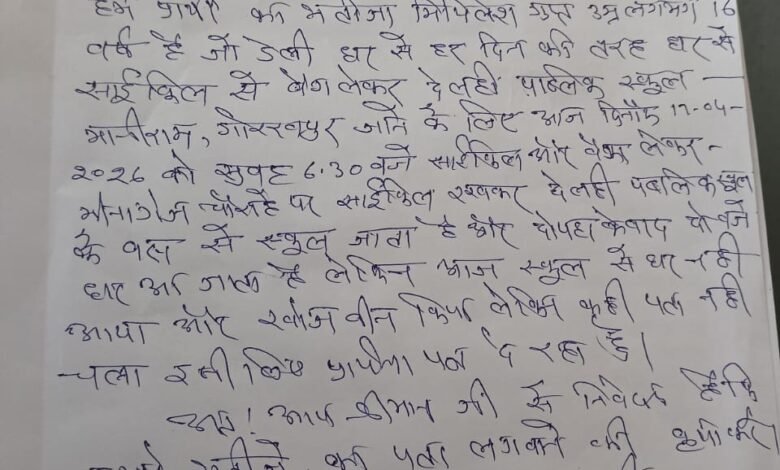 हम प्रार्थी का भतीजा मिथिलेश गुप्त उम्र लगभग 16
वर्ष है जो डेली घर से हर दिन की तरह घर से
साईकिल से बैग लेकर देलही पाब्लिक स्कूल -
मानीराम, गोरखपुर जाने के लिए आज दिनाँक 17-04-
2026 को सुबह 6.30 बजे साईकिल और बैग लेकर -
चौराहे पर साईकिल रखकर देलही पबलिक स्कूल
के बस से स्कूल जाता है और दोपहर के बाद दो बजे
घर आ जाता है लेकिन आज स्कूल से घर नही
आया और खोज बीन किया लेकिन कही पता नही
चला इसी लिए प्रार्थना पत्र दे रहा हूँ।
अतः! आप श्रीमान जी से निवेदन है कि
भतीजे का पता लगवाने की कृपा करें।